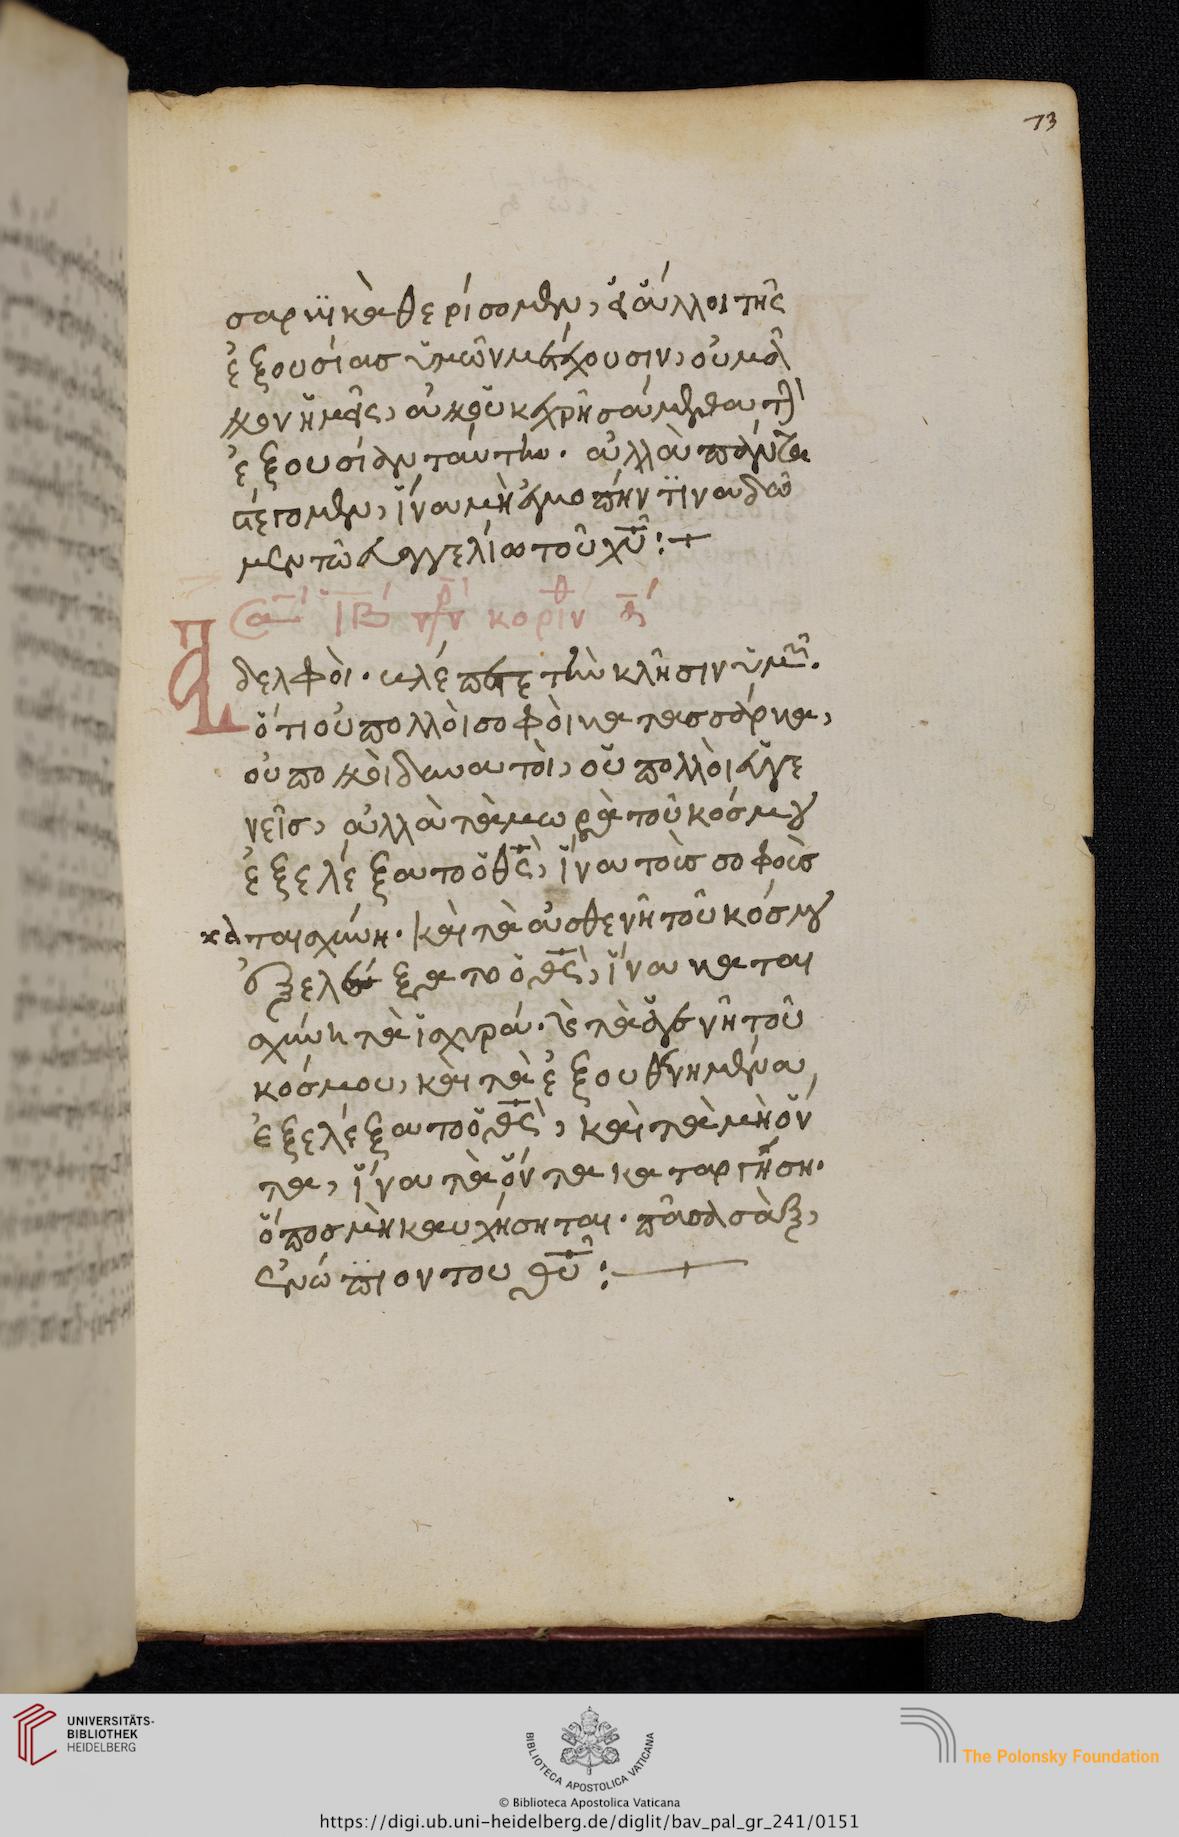 73
σαρκικὰ θερίσομεν, εἰ ἄλλοι τῆς
ἐξουσίας ὑμῶν μετέχουσιν, οὐ μᾶλ
λον ἡμεῖς, ἀλλ' οὐκ ἐχρησάμεθα τῇ
ἐξουσίᾳ ταύτῃ. ἀλλὰ πάντα
στέγομεν, ἵνα μὴ ἐγκοπήν τινα δῶ
μεν τῷ εὐαγγελίῳ τοῦ χῦ:+
ΙΒ κοριν
Ἀδελφοὶ. βλέπετε τὴν κλῆσιν ὑμῶν.
ὅτι οὐ πολλοὶ σοφοὶ κατὰ σάρκα,
οὐ πολλοὶ δυνατοὶ, οὐ πολλοὶ εὐγε
νεῖς, ἀλλὰ τὰ μωρὰ τοῦ κόσμου
ἐξελέξατο ὁ θς, ἵνα τοὺς σοφοὺς
καταισχύνη. καὶ τὰ ἀσθενῆ τοῦ κόσμου
ἐξελέξατο ὁ θς, ἵνα καται
σχύνη τὰ ἰσχυρά. καὶ τὰ ἀγενῆ τοῦ
κόσμου, καὶ τὰ ἐξουθενημένα,
ἐξελέξατο ὁ θς, καὶ τὰ μὴ ὄν
τα, ἵνα τὰ ὄντα καταργήση.
ὅπος μὴ καυχήσηται. πᾶσα σὰρξ,
ἐνώπιον του θῦ:
UNIVERSITÄTS-
BIBLIOTHEK
HEIDELBERG
BIBLIOTECA APOSTOLICA VATICANA
The Polonsky Foundation
© Biblioteca Apostolica Vaticana
https://digi.ub.uni-heidelberg.de/diglit/bav_pal_gr_241/0151